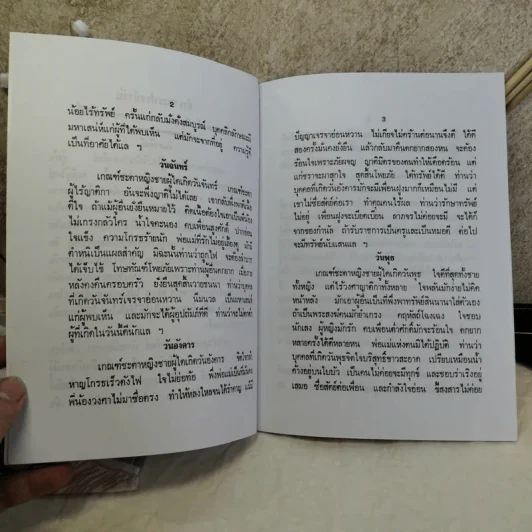 2
น้อยไร้ทรัพย์ ครั้นแก่กลับมั่งคั่งสมบูรณ์ บุคคลิกลักษณะมี
มหาเสน่ห์แก่ผู้ที่ได้พบเห็น แต่มักจะจากที่อยู่ ความรู้จึ
เป็นที่อาศัยได้แล ฯ
วันจันทร์
เกณฑ์ชะตาหญิงชายผู้ใดเกิดวันจันทร์ เกณฑ์ชะตา
ผู้ไร้ญาติกา อันจะพึ่งญาติไม่ได้เลย
ดีใจ ถ้าแม้ผู้อื่นยิ่งยืนหมายไว้
ไม่เกรงกลัวใคร น้ำใจคะนอง คบเพื่อนสูงศักดิ์
ใจแข็ง ความโกรธร้ายนัก พ่อแม่ที่รักไม่อยู่
ตำหนิเป็นแผลสำคัญ มิฉะนั้นท่านว่าถูกไฟ
ได้เจ็บไข้ โทษทัณฑ์ภัยเพราะท่านผู้อื่นกยาก เมื่อภาย
หลังคงคืนครอบครัว ยิ่งยืนสุดสิ้นวายชนมา ท่านว่าบุคค
ที่เกิดวันจันทร์เจรจาอ่อนหวาน นิ่มนวล เป็นมหาเสน่ห์
แก่ผู้พบเห็น และมักจะได้ผู้อุปถัมภ์ที่ดี ท่านว่าจะไม่ตกต่ำ
ผู้ที่เกิดในวันนี้ดีนักแล ฯ
วันอังคาร
เกณฑ์ชะตาหญิงชายผู้ใดเกิดวันอังคาร
หาญโกรธเร็วดังไฟ ใจไม่ย่อท้อ
พี่น้องวงศาไม่น่าซื่อตรง ทำให้หลงไหลจนได้รำคาญ
3
ปัญญาเจรจาอ่อนหวาน ไม่เกียจไม่คร้านต่อนานจึงดี ได้ดี
สองครั้งมั่นคงยั่งยืน แล้วกลับมาคืนตกยากสองหน จะต้อง
ร้อนใจเพราะภัยผจญ ญาติมิตรของตนทำให้เดือดร้อน แต่
แก่ชราจะผาสุกใจ สุดสิ้นโพยภัย ได้ทรัพย์ได้ดี ท่านว่า
บุคคลที่เกิดวันอังคารมักจะมีเพื่อนฝูงมากก็เหมือนไม่มี แต่
เราไม่ซื่อสัตย์ต่อเขา ทำคุณคนไร้ผล ท่านว่ารักษาทรัพย์
ไม่อยู่ เพื่อนฝูงจะเบียดเบียน ลาภจรไม่ค่อยจะมี จะได้ก็
จากของกำนัล ถ้ารับราชการเป็นครูและเป็นหมอดี ต่อไป
จะมีทรัพย์นับแสนแล ฯ
วันพุธ
เกณฑ์ชะตาหญิงชายผู้ใดเกิดวันพุธ ใจดีที่สุดทั้งชาย
ทั้งหญิง แต่ไร้วงศาญาติกาทั้งหลาย ใจพลันมักง่ายไม่คิด
หน้าหลัง มักเอาผู้อื่นเป็นที่พึ่งพาทรัพย์สินนานาใส่ตัวเอง
ถ้าเป็นพระสงฆ์คนมักยำเกรง คฤหัสถ์โฉงเฉง ใจชอบ
นักเลง ผู้หญิงมักรัก คบเพื่อนต่ำศักดิ์มักจะร้อนใจ ตกยาก
หลายครั้งได้ดีหลายหน พ่อแม่แห่งตนมิได้ปฏิบัติ ท่านว่า
บุคคลที่เกิดวันพุธจิตใจบริสุทธิ์ขาวสะอาด เปรียบเหมือนน้ำ
ค้างอยู่บนใบบัว เป็นคนไม่ค่อยจะมีทุกข์ และชอบร่าเริงอยู่
เสมอ ซื่อสัตย์ต่อเพื่อน และกำลังใจอ่อน ขี้สงสารไม่ค่อย